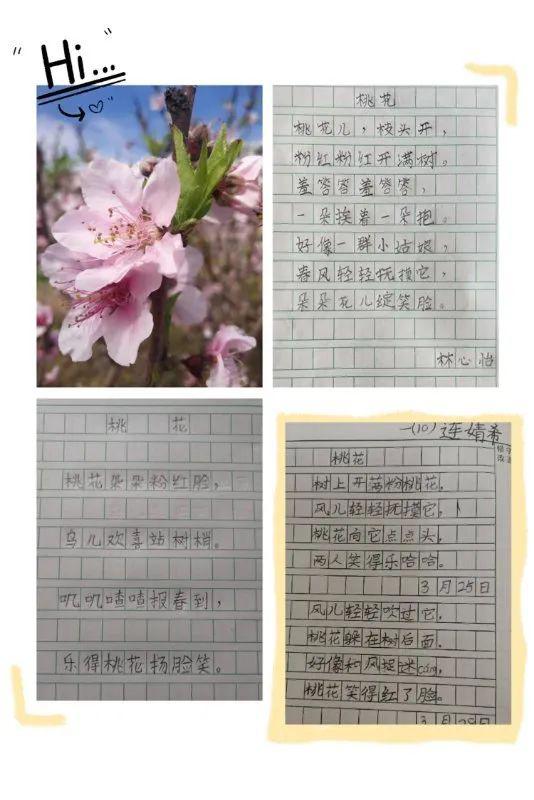 Hi...
桃花
桃花儿，枝头开，
粉红粉红开满树。
羞答答羞答答，
一朵挨着一朵抱。
好像一群小姑娘，
春风轻轻抚摸它，
朵朵花儿绽笑脸。
林心怡
桃花
桃花朵朵粉红脸，
鸟儿欢喜站树梢。
叽叽喳喳报春到，
乐得桃花扬脸笑。
一(10)连婧希
桃花
树上开满粉桃花，
风儿轻轻抚摸它，
桃花向它点点头，
两人笑得乐哈哈。
3月25日
风儿轻轻吹过它，
桃花躲在树后面。
好像和风捉迷cáng，
桃花笑得红了脸。